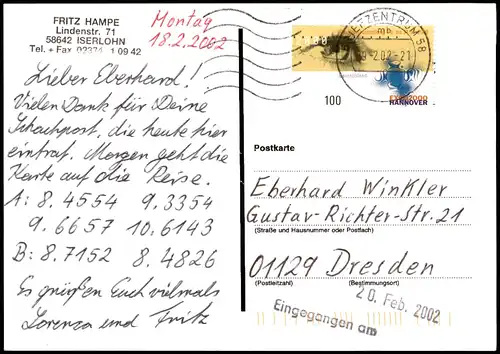 FRITZ HAMPE
Lindenstr. 71
58642 ISERLOHN
Tel. + Fax 02374 1 09 42
Montag
18.2.2002
Lieber Eberhard!
Vielen Dank für Deine
Schachpost, die heute hier
eintraf. Morgen geht die
Karte auf die Reise.
A: 8. 4554 9. 3354
9. 6657 10. 6143
B: 8. 7152 8. 4826
Es grüßen Euch vielmals
Lorenza und Fritz
EFZENTRUM 58
mb
.2.02-21
100
EXPO2000
HANNOVER
Postkarte
Eberhard Winkler
Gustav-Richter-Str. 21
(Straße und Hausnummer oder Postfach)
01129 Dresden
(Postleitzahl) (Bestimmungsort)
Eingegangen am 20. Feb. 2002